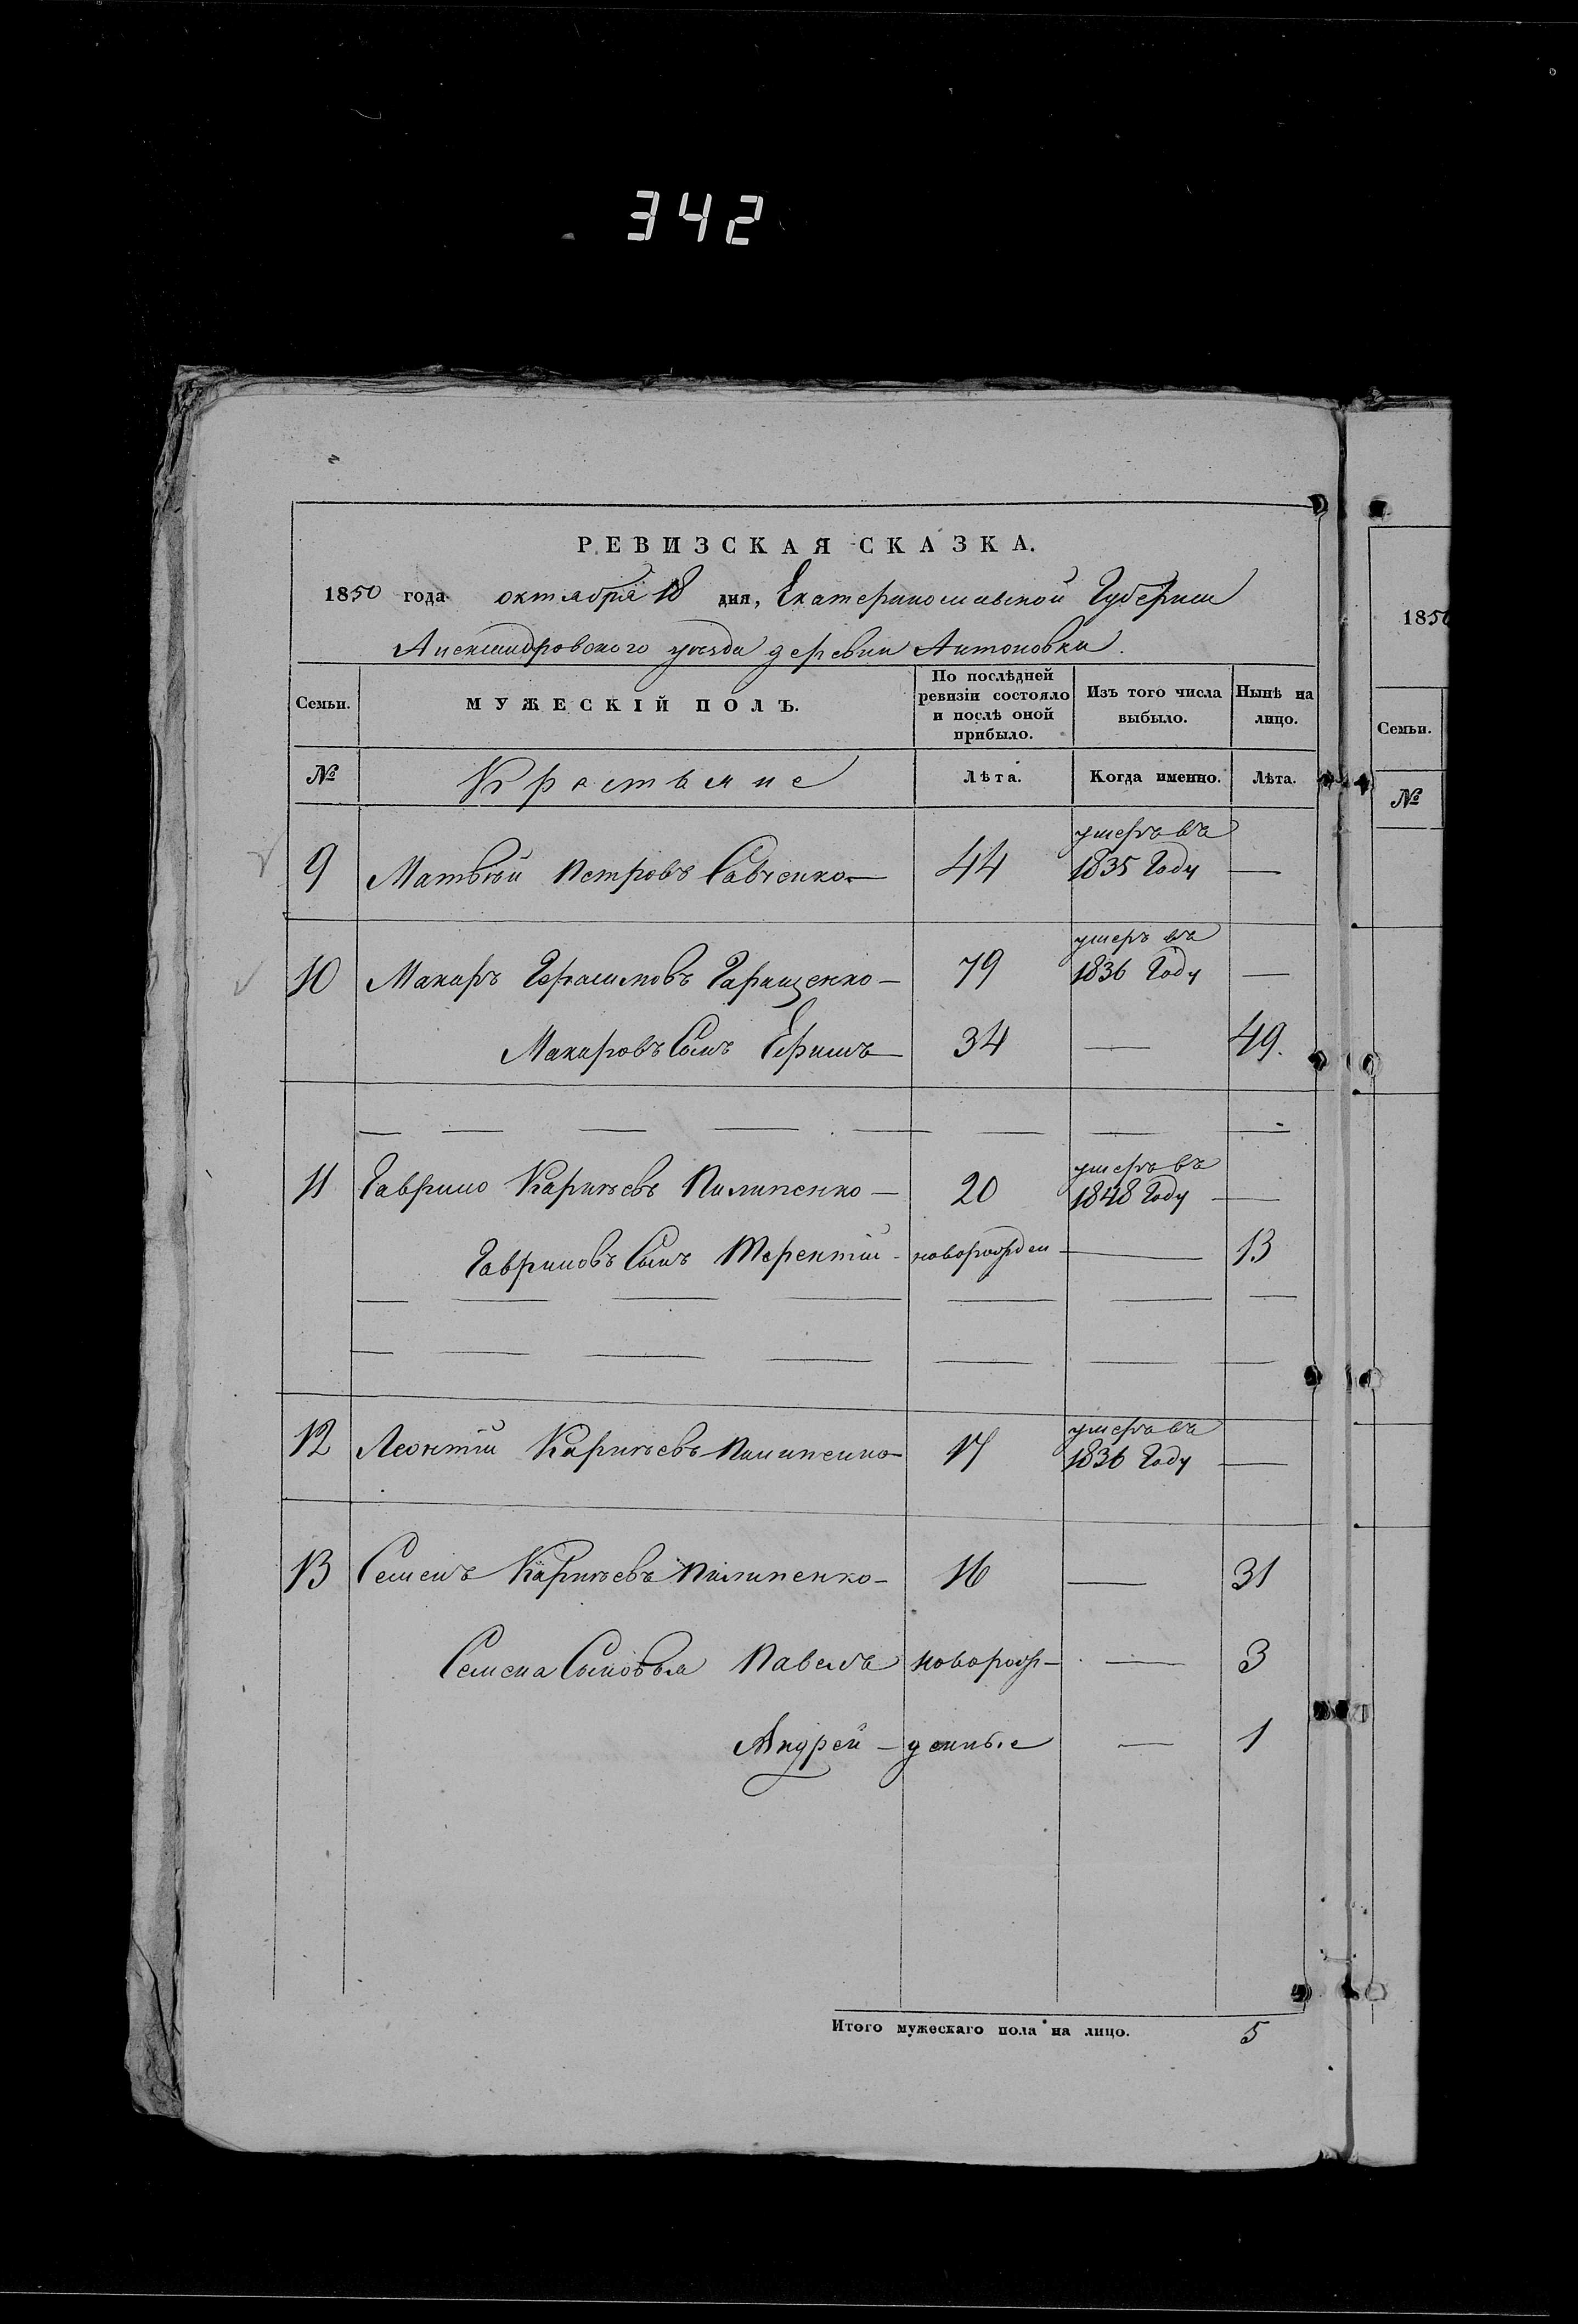 342
РЕВИЗСКАЯ СКАЗКА.
1850 года октября 18 дня, Екатеринославской Губернии
Александровского уезда деревни Антоновки.
Семьи. МУЖЕСКІЙ ПОЛЪ. По послѣдней ревизіи состояло и послѣ оной прибыло. Изъ того числа выбыло. Нынѣ на лицо.
№ Крестьяне Лѣта. Когда именно. Лѣта.
9 Матвѣй Петровъ Савченко — 44 умеръ въ 1835 Году —
10 Макаръ Герасимовъ Таращенко — 79 умеръ въ 1836 Году —
Макаровъ Сынъ — 34 — 49.
11 Гаврило Карпѣевъ Пилипенко — 20 умеръ въ 1848 Году —
Гавриловъ Сынъ Терентій - новорожден — 13
12 Леонтій Карпѣевъ Пилипенко — 17 умеръ въ 1836 Году —
13 Семенъ Карпѣевъ Пилипенко — 16 — 31
Семена Сыновья Павелъ новорож- — 3
Андрей — денные — 1
Итого мужескаго пола на лицо. 5
1850
Семьи.
№